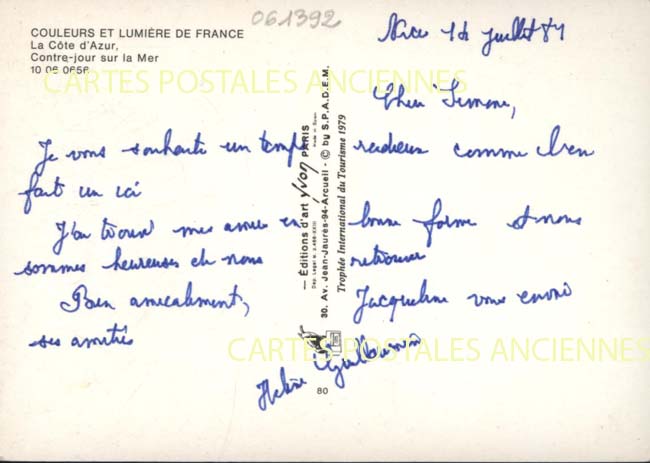 061392
COULEURS ET LUMIÈRE DE FRANCE
La Côte d'Azur,
Contre-jour sur la Mer
10 06 0656
CARTES POSTALES ANCIENNES
Nice juillet
Cher Simone,
Je vous souhaite un temps radieux comme l'en
fait un ici
J'ai trouvé mes amies en bonne forme et nous
sommes heureuses de nous retrouver
Bien amicalement, Jacqueline vous envoie
ses amitiés
Guillaumin
— Éditions d'art yvon PARIS
30. Av. Jean-Jaurès-94-Arcueil - © by S.P.A.D.E.M.
Trophée International du Tourisme 1979
CARTES POSTALES ANCIENNES
80